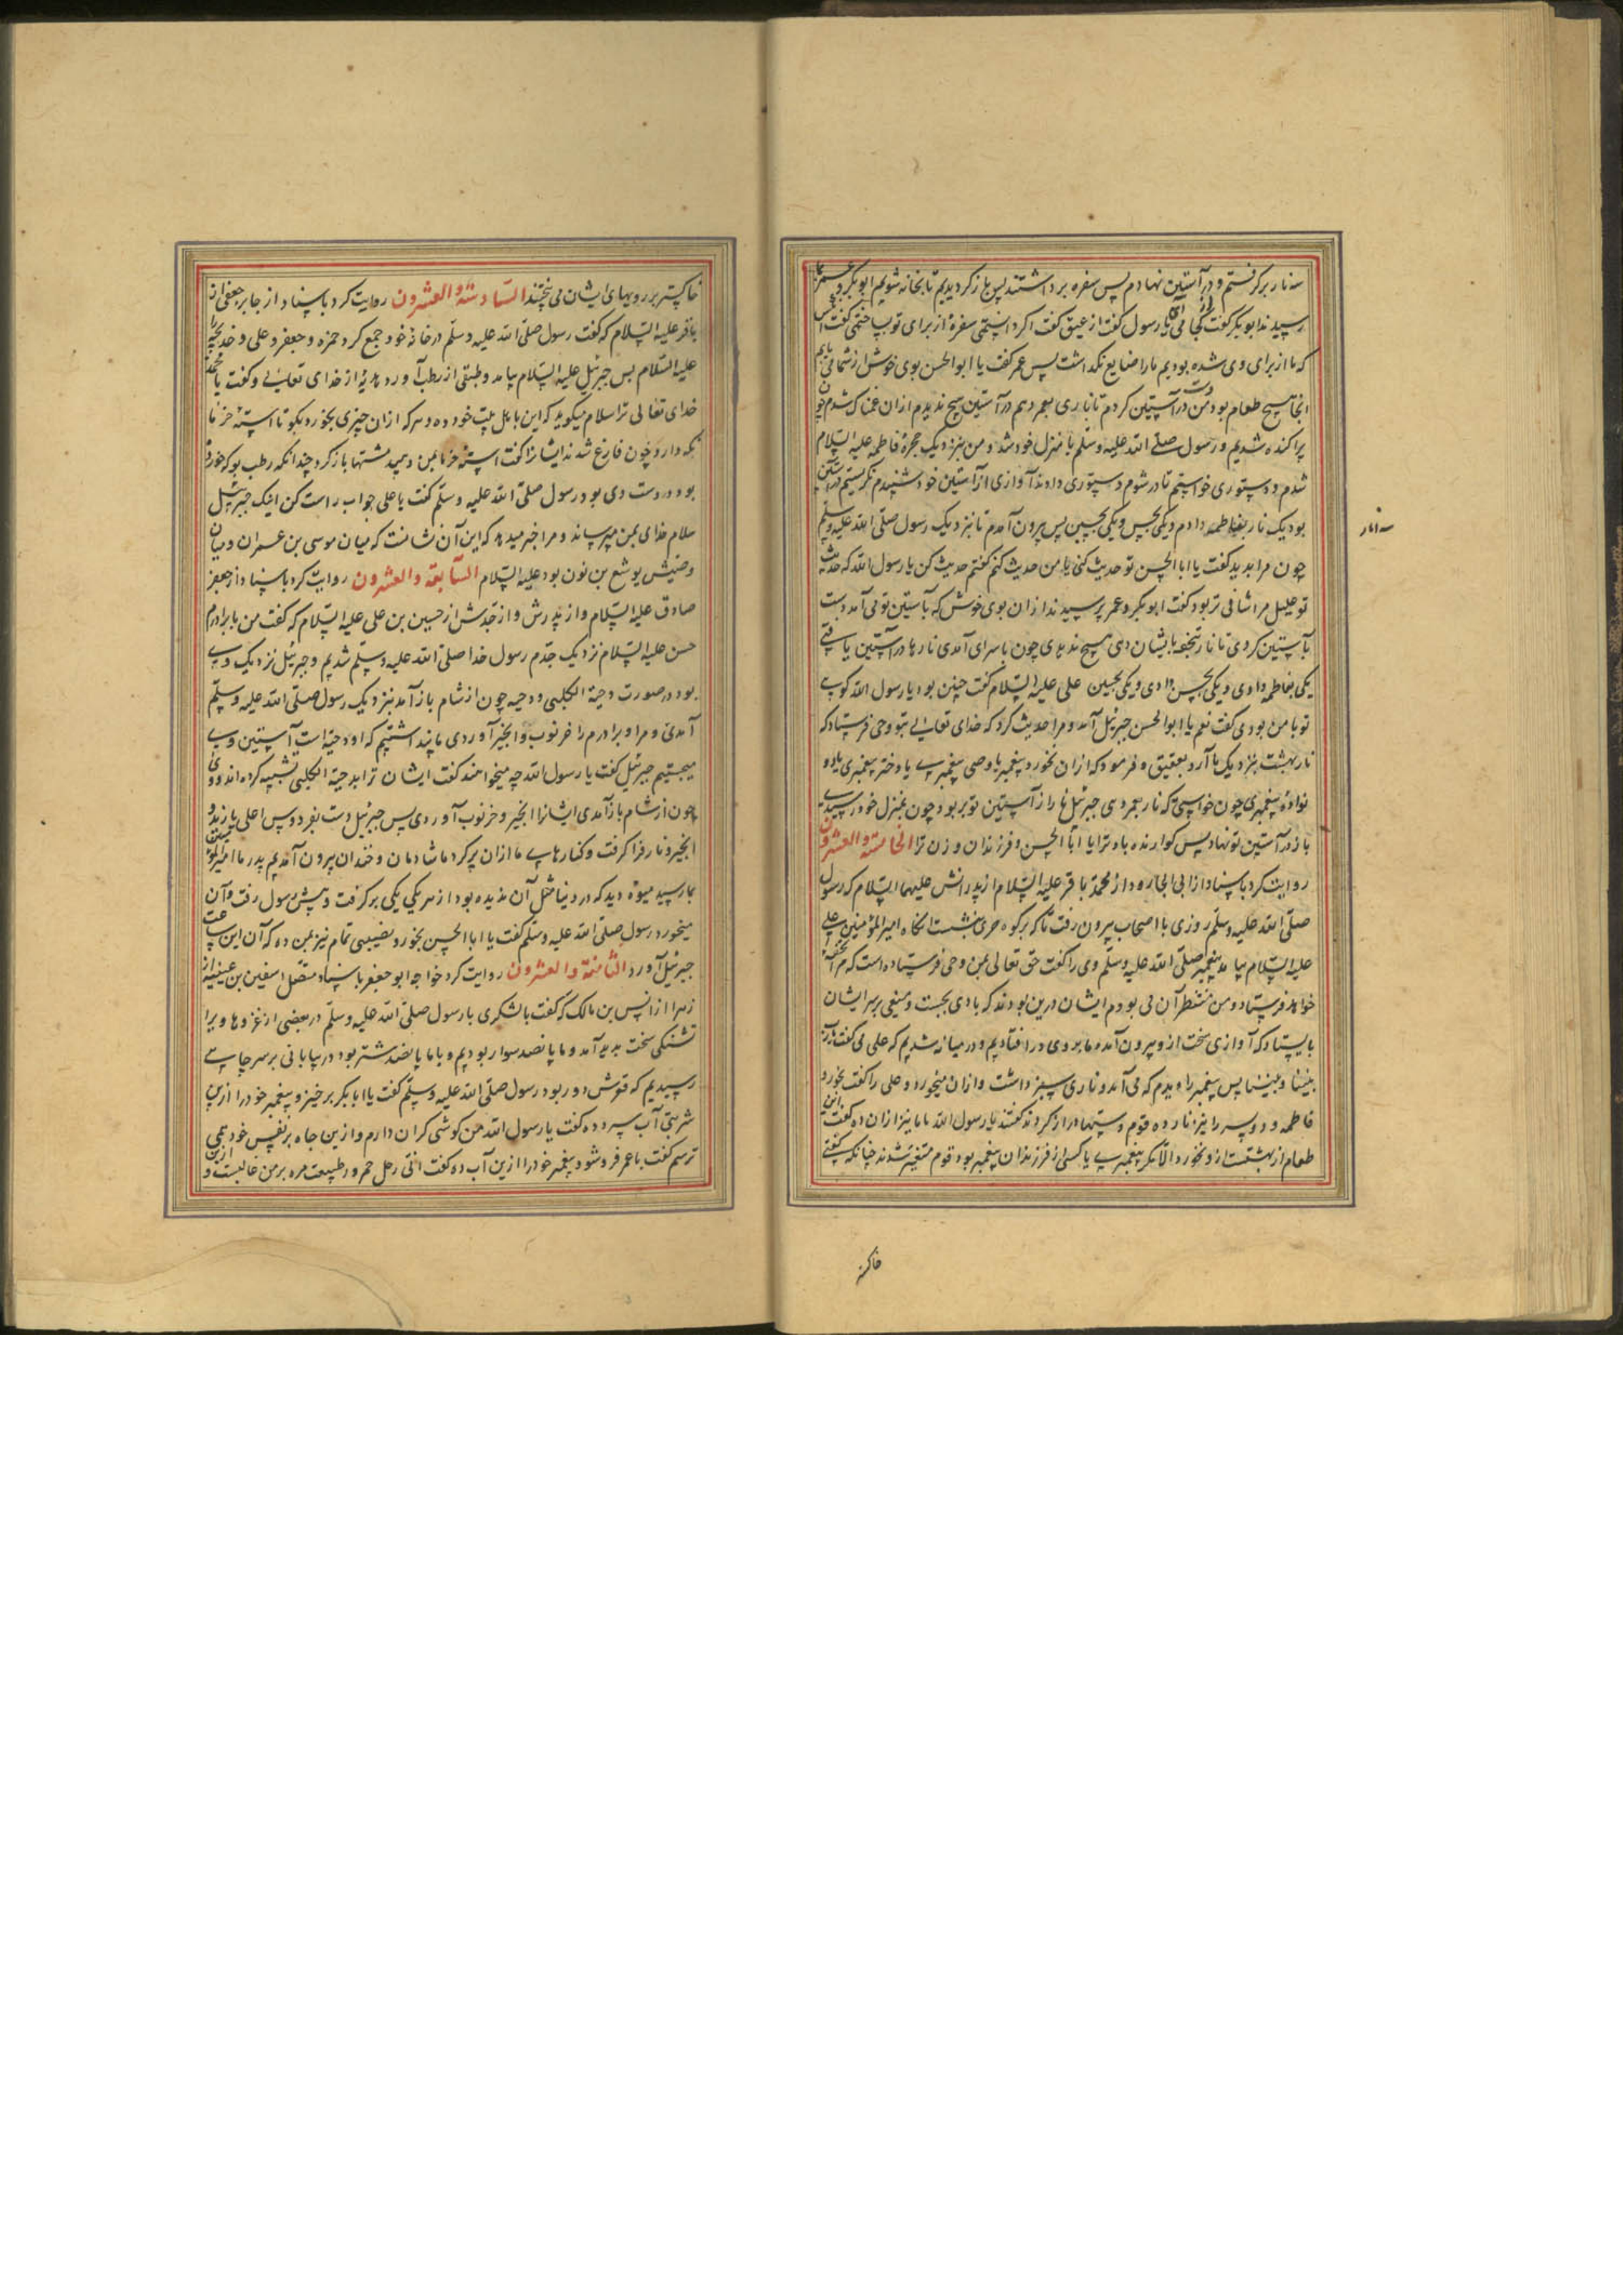 سه نار برگرفتم و در آستین نهادم پس سفره برداشتند پس باز گردیدیم تا بخانه شویم ابو بکر و عمر بما
رسیدند ابو بکر گفت از کجا می آئی یا رسول گفت از عقیق گفت اگر دانستمی سفره از برای تو بساختمی گفت
که ما از برای وی شده بودیم ما را ضایع نگذاشت پس عمر گفت یا ابو الحسن بوی خوش از شما می یابم
آنجا هیچ طعام بود من دست در آستین کردم تا ناری بعمر دهم در آستین هیچ ندیدم از آن غمناک شدم چون
پراکنده شدیم و رسول صلی الله علیه وسلم با منزل خود شد و من بنزدیک حجرهٔ فاطمه علیه السلام
شدم و دستوری خواستم تا در شوم دستوری دادند آوازی از آستین خود شنیدم نگریستم در آستین
بود یک نار بفاطمه دادم و یکی بحسن و یکی بحسین پس بیرون آمدم تا بنزدیک رسول صلی الله علیه وسلم
چون مرا بدید گفت یا ابا الحسن تو حدیث کنی یا من حدیث کنم گفتم حدیث کن یا رسول الله که حدیث
تو علیل مرا شافی تر بود گفت ابو بکر و عمر پرسیدند از آن بوی خوش که بآستین تو می آمد دست
بآستین کردی تا نار بتحفه بایشان دهی هیچ ندیدی چون باسرای آمدی نارها در آستین یافتی
یکی بفاطمه دادی و یکی بحسن دادی و یکی بحسین علی علیه السلام گفت چنین بود یا رسول الله گویی
تو با من بودی گفت نعم یا ابو الحسن جبرئیل آمد و مرا حدیث کرد که خدای تعالی بتو وحی فرستاد که
نار بهشت بنزدیک ما آرد بعقیق و فرمود که از آن نخورد پیغمبر یا وصی پیغمبری یا دختر پیغمبری یا دو
نوادهٔ پیغمبری چون خواستی که نار بعمر دهی جبرئیل نار از آستین تو بربود چون بمنزل خود رسیدی
باز در آستین تو نهاد پس گوارنده باد ترا یا ابا الحسن و فرزندان و زن ترا الخامسة والعشرون
روایت کرد باسناد از ابی الجارود از محمد باقر علیه السلام از پدرانش علیهما السلام که رسول
صلی الله علیه وسلم روزی با اصحاب بیرون رفت تا که بر کوه حری بنشست آنگاه امیر المؤمنین علی
علیه السلام بیامد پیغمبر صلی الله علیه وسلم وی را گفت حق تعالی بمن وحی فرستاده است که مرا تحفهٔ
خواهد فرستاد و من منتظر آن می بودم ایشان درین بودند که بادی بجست و میغی بر سر ایشان
بایستاد که آوازی سخت از و بیرون آمد ما بروی در افتادیم و در میانه شدیم که علی می گفت
بیننا و بیننا پس پیغمبر را دیدم که می آمد و ناری سبز داشت و از آن میخورد و علی را گفت بخور و
فاطمه و دو پسر را نیز نار ده قوم دستها دراز کردند گفتند یا رسول الله ما را نیز از آن ده گفت این
طعام از بهشتست ازو نخورد الا مگر پیغمبری یا کسی از فرزندان پیغمبر بود قوم متغیر شدند چنانکه گفتی
سه انار
خاکستر
خاکستر بر رویهای ایشان می بیختند السادسة والعشرون روایت کرد باسناد از جابر جعفی از
باقر علیه السلام که گفت رسول صلی الله علیه وسلم در خانهٔ خود جمع کرد حمزه و جعفر و علی و خدیجه را
علیه السلام پس جبرئیل علیه السلام بیامد و طبقی از رطب آورد هدیهٔ از خدای تعالی و گفت یا محمد
خدای تعالی ترا سلام میگوید که این با اهل بیت خود ده و هر که از آن چیزی بخورد بگو تا استهٔ خرما
نگه دارد چون فارغ شدند ایشانرا گفت استهٔ خرما بمن دهید مشتها باز کرد چندانکه رطب بود که خورده
بود در دست وی بود رسول صلی الله علیه وسلم گفت یا علی جواب راست کن اینک جبرئیل
سلام خدای بمن میرساند و مرا خبر میدهد که این آن نشانست که میان موسی بن عمران و میان
وصیش یوشع بن نون بود علیه السلام السابعة والعشرون روایت کرد باسناد از جعفر
صادق علیه السلام و از پدرش و از جدش از حسین بن علی علیه السلام که گفت من با برادرم
حسن علیه السلام نزدیک جدم رسول خدا صلی الله علیه وسلم شدیم و جبرئیل نزدیک وی
بود در صورت دحیة الکلبی و دحیه چون از شام باز آمد بنزدیک رسول صلی الله علیه وسلم
آمدی و مرا و برادرم را خرنوب و انجیر آوردی ما پنداشتیم که او دحیه است آستین وی
میجستیم جبرئیل گفت یا رسول الله چه میخواهند گفت ایشان ترا بدحیة الکلبی تشبیه کرده اند و وی
چون از شام باز آمدی ایشانرا انجیر و خرنوب آوردی پس جبرئیل دست بفردوس اعلی یازید و
انجیر و نار فرا گرفت و کنارهای ما از آن پر کرد ما شادمان و خندان بیرون آمدیم پدر ما امیر المؤمنین
بما رسید میوهٔ دید که در دنیا مثل آن ندیده بود از هر یکی یکی برگرفت و پیش رسول رفت و آن
میخورد رسول صلی الله علیه وسلم گفت یا ابا الحسن بخور و نصیبی تمام نیز بمن ده که آن این ساعت
جبرئیل آورد الثامنة والعشرون روایت کرد خواجه ابو جعفر باسناد متصل از سفین بن عیینه از
زهرا از انس بن مالک که گفت بالشکری با رسول صلی الله علیه وسلم در بعضی از غزوها و برا
تشنگی سخت پدید آمد و ما پانصد سوار بودیم و با ما پانصد شتر بود در بیابانی بر سر چاهی
رسیدیم که قعرش دور بود رسول صلی الله علیه وسلم گفت یا ابا بکر برخیز و پیغمبر خود را ازین
شربتی آب سرد ده گفت یا رسول الله من گوشی گران دارم و ازین چاه بر نفس خود همی
ترسم گفت یا عمر فرو شو و پیغمبر خود را ازین آب ده گفت انی رجل محرور طبیعت مره بر من غالبست و ازین